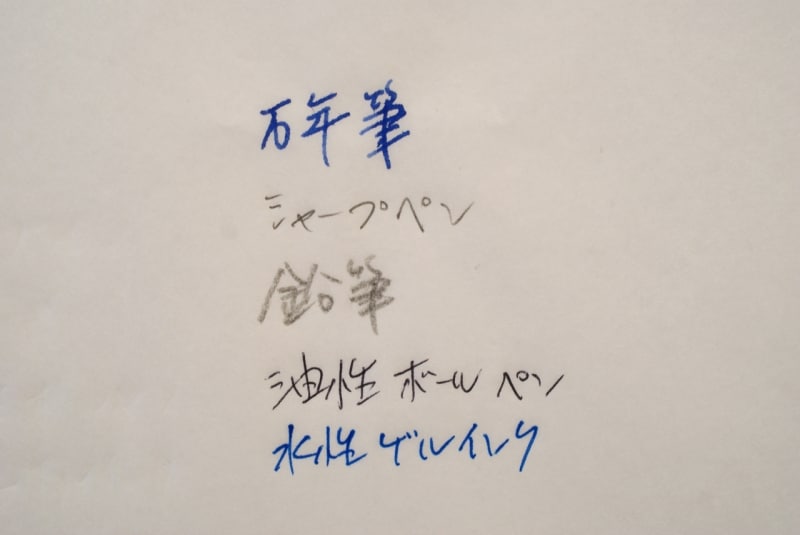 万年筆
シャープペン
鉛筆
油性ボールペン
水性ゲルインク